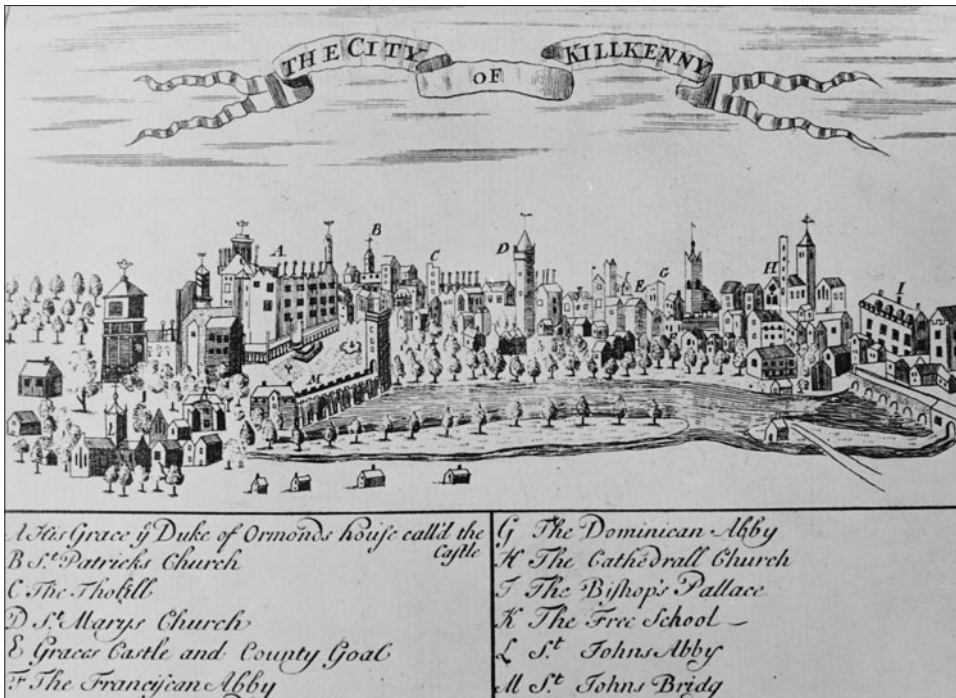 THE CITY OF KILLKENNY
A
B
C
D
E
G
H
I
M
A His Grace ÿ Duke of Ormonds house call'd the Castle
B S.t Patricks Church
C The Tholsill
D S.t Marys Church
E Graces Castle and County Goal
F The Franciscan Abby
G The Dominican Abby
H The Cathedrall Church
I The Bishop's Pallace
K The Free School
L S.t Johns Abby
M S.t Johns Bridg